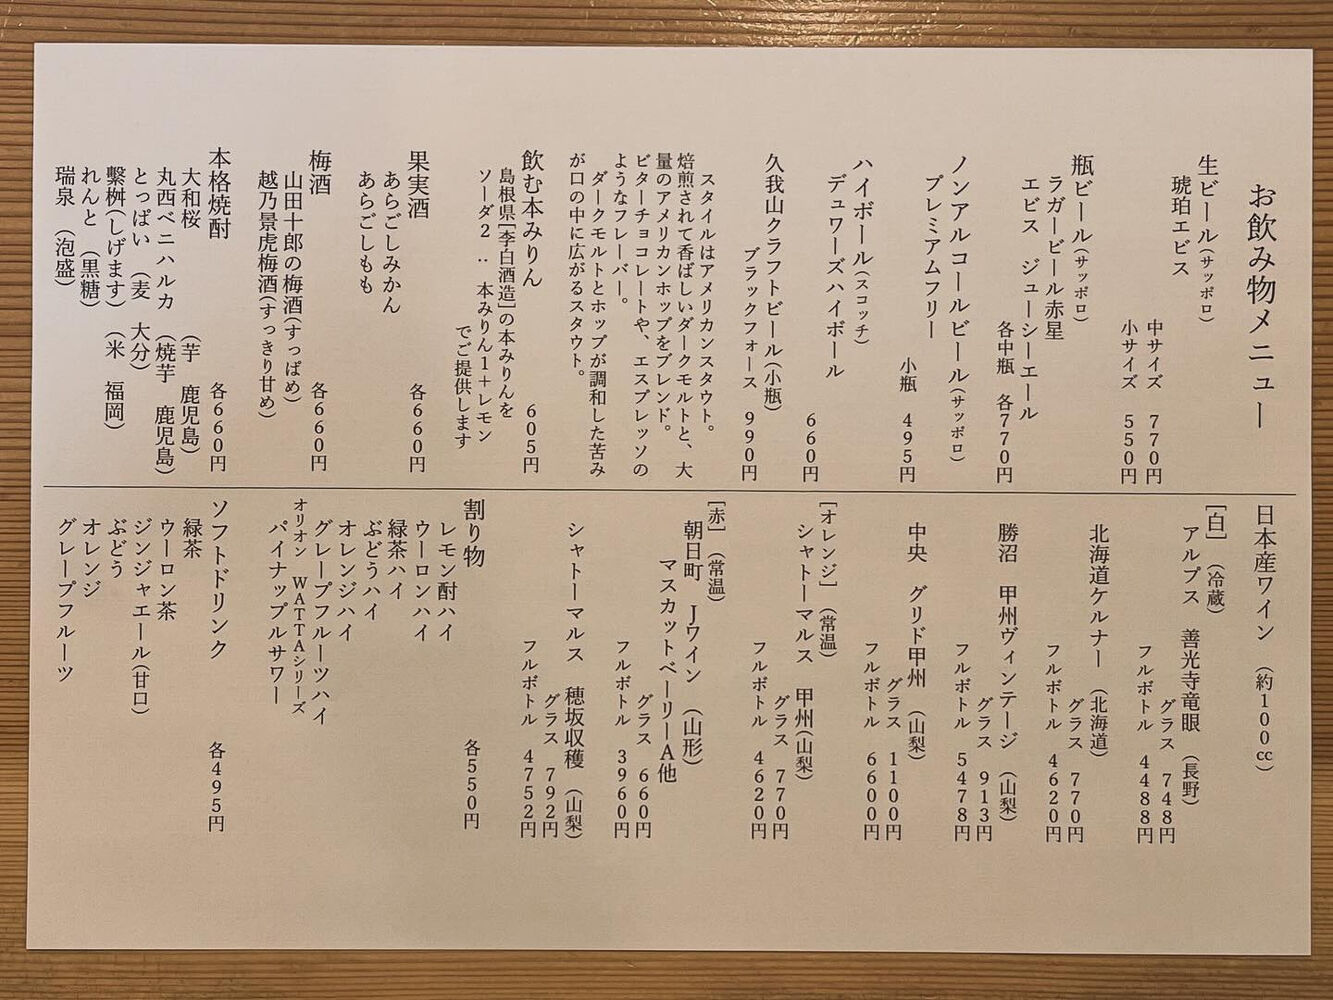 お飲み物メニュー
生ビール(サッポロ)
琥珀ヱビス
中サイズ 770円
小サイズ 550円
瓶ビール(サッポロ)
ラガービール赤星
エビス ジューシーエール
各中瓶 各770円
ノンアルコールビール(サッポロ)
プレミアムフリー
小瓶 495円
ハイボール(スコッチ)
デュワーズハイボール
660円
久我山クラフトビール(小瓶)
ブラックフォース 990円
スタイルはアメリカンスタウト。
焙煎されて香ばしいダークモルトと、大
量のアメリカンホップをブレンド。
ビターチョコレートや、エスプレッソの
ようなフレーバー。
ダークモルトとホップが調和した苦み
が口の中に広がるスタウト。
飲む本みりん 605円
島根県[李白酒造]の本みりんを
ソーダ2：本みりん1＋レモン
でご提供します
果実酒 各660円
あらごしみかん
あらごしもも
梅酒 各660円
山田十郎の梅酒(すっぱめ)
越乃景虎梅酒(すっきり甘め)
本格焼酎 各660円
大和桜 (芋 鹿児島)
丸西ベニハルカ (焼芋 鹿児島)
とっぱい (麦 大分)
繋桝(しげます) (米 福岡)
れんと (黒糖)
瑞泉 (泡盛)
日本産ワイン (約100cc)
[白] (冷蔵)
アルプス 善光寺竜眼 (長野)
グラス 748円
フルボトル 4488円
北海道ケルナー (北海道)
グラス 770円
フルボトル 4620円
勝沼 甲州ヴィンテージ (山梨)
グラス 913円
フルボトル 5478円
中央 グリド甲州 (山梨)
グラス 1100円
フルボトル 6600円
[オレンジ] (常温)
シャトーマルス 甲州(山梨)
グラス 770円
フルボトル 4620円
[赤] (常温)
朝日町 Jワイン (山形)
マスカットベーリーA他
グラス 660円
フルボトル 3960円
シャトーマルス 穂坂収穫 (山梨)
グラス 792円
フルボトル 4752円
割り物 各550円
レモン酎ハイ
ウーロンハイ
緑茶ハイ
ぶどうハイ
オレンジハイ
グレープフルーツハイ
オリオン WATTAシリーズ
パイナップルサワー
ソフトドリンク 各495円
緑茶
ウーロン茶
ジンジャエール(甘口)
ぶどう
オレンジ
グレープフルーツ